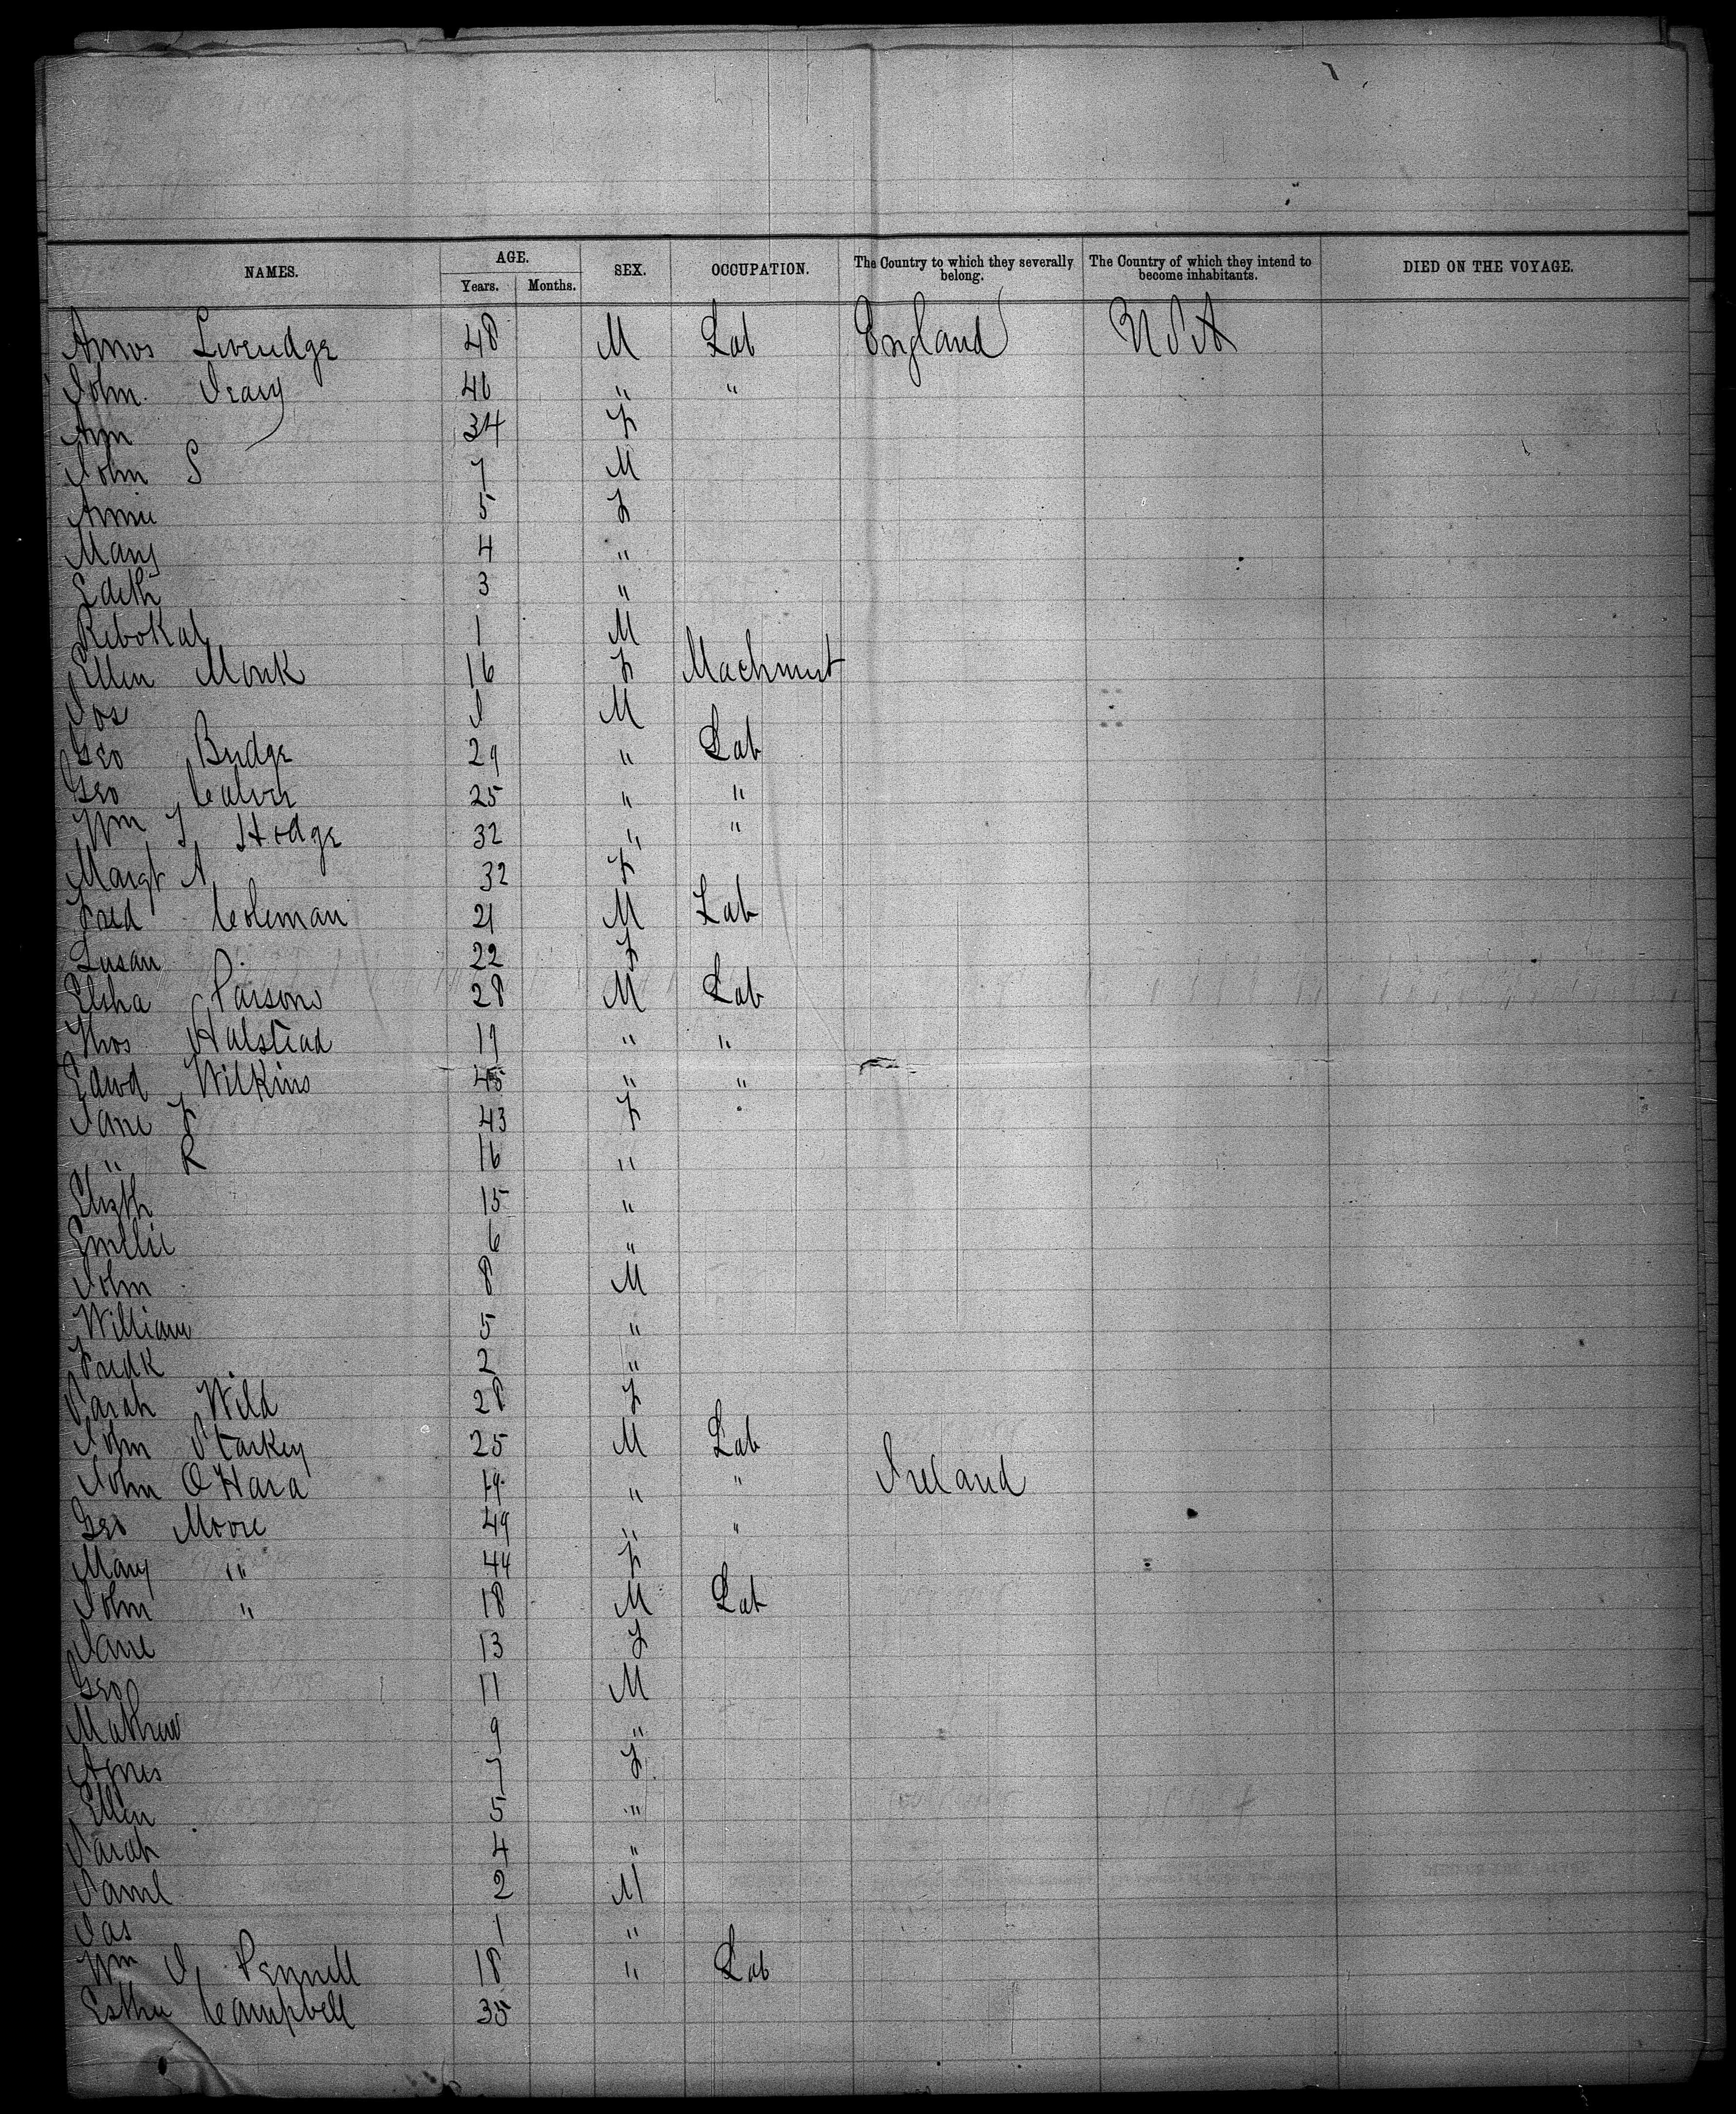 NAMES. AGE. SEX. OCCUPATION. The Country to which they severally belong. The Country of which they intend to become inhabitants. DIED ON THE VOYAGE.
Years. Months.
Amos Liveridge 48 M Lab England USA
John 40 " "
Ann 34 F
John S 7 M
Annie 5 F
Mary 4 "
Edith 3 "
1 M
Ellen Monk 16 F Machinist
Jos M
Geo Budge 29 " Lab
Geo Calver 25 " "
Wm J Hodge 32 " "
Margt A 32 F
Fred Coleman 21 M Lab
Susan 22 F
Elisha Parsons 28 M Lab
Thos Halstead 17 " "
Edwd Wilkins 45 " "
Jane F 43 F
" R 16 "
Elizth 15 "
Emilie 6 "
John 8 M
William 5 "
Fredk 2 "
Sarah Wild 28 F
John Starkey 25 M Lab
John O'Hara 19 " " Ireland
Geo Moore 49 " "
Mary " 44 F
John " 18 M Lab
Jane 13 F
Geo 11 M
Mathew 9 "
Agnes 7 F
Ellen 5 "
Sarah 4 "
Saml 2 M
Jas 1 "
Wm J Pennell 18 " Lab
Esther Campbell 35